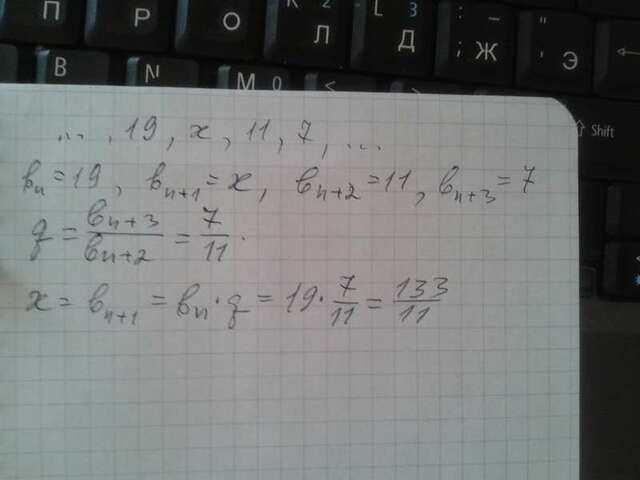 П Р О К 2 Л L 3 Д : ; Ж " ' Э
В N М 0 <
Shift
..., 19, x, 11, 7, ...
bₙ = 19, bₙ₊₁ = x, bₙ₊₂ = 11, bₙ₊₃ = 7
q = bₙ₊₃/bₙ₊₂ = 7/11.
x = bₙ₊₁ = bₙ · q = 19 · 7/11 = 133/11